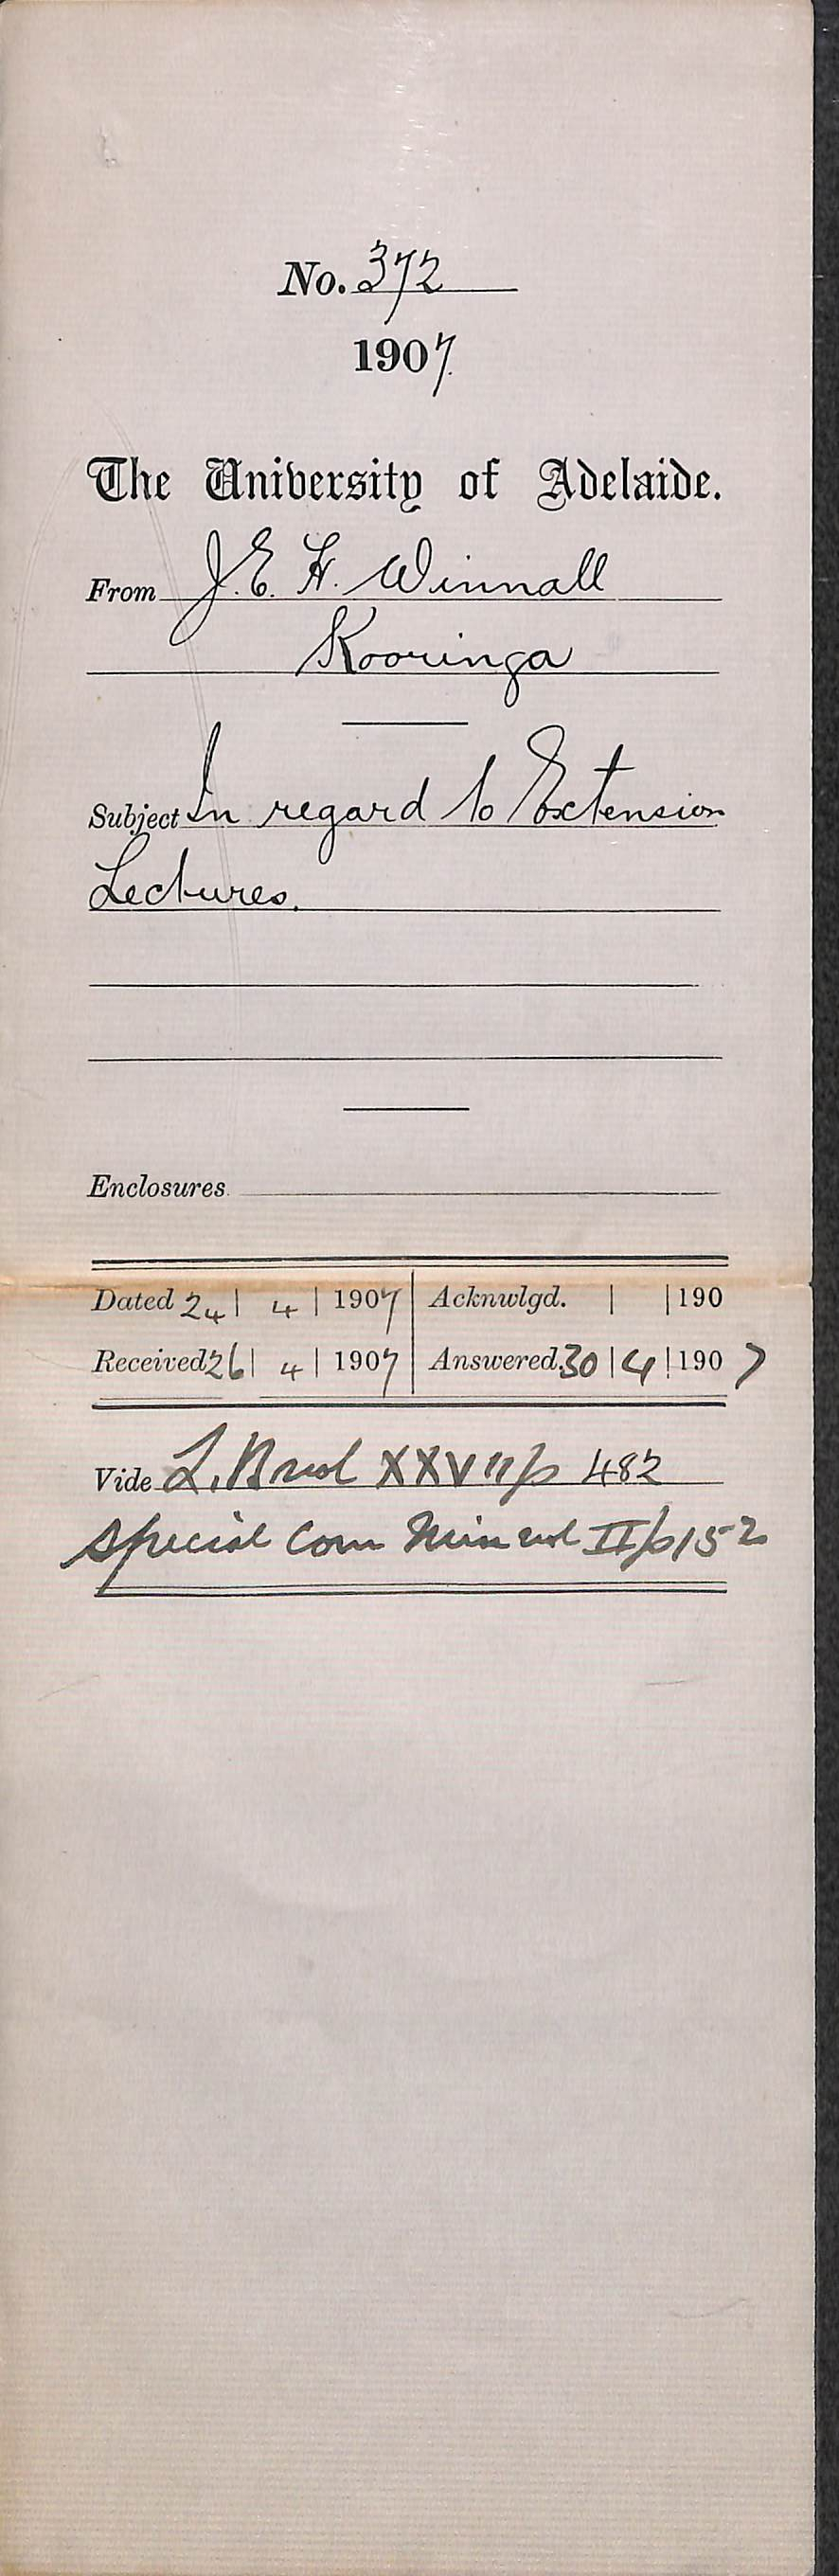 No. 372
1907.
The University of Adelaide.
From J. E. H. Winnall
Kooringa
Subject In regard to Extension
Lectures.
Enclosures
Dated 24 | 4 | 1907 Acknwlgd. | | 190
Received 26 | 4 | 1907 Answered. 30 | 4 | 1907
Vide L. XXVII p 482
Special Com II p 152